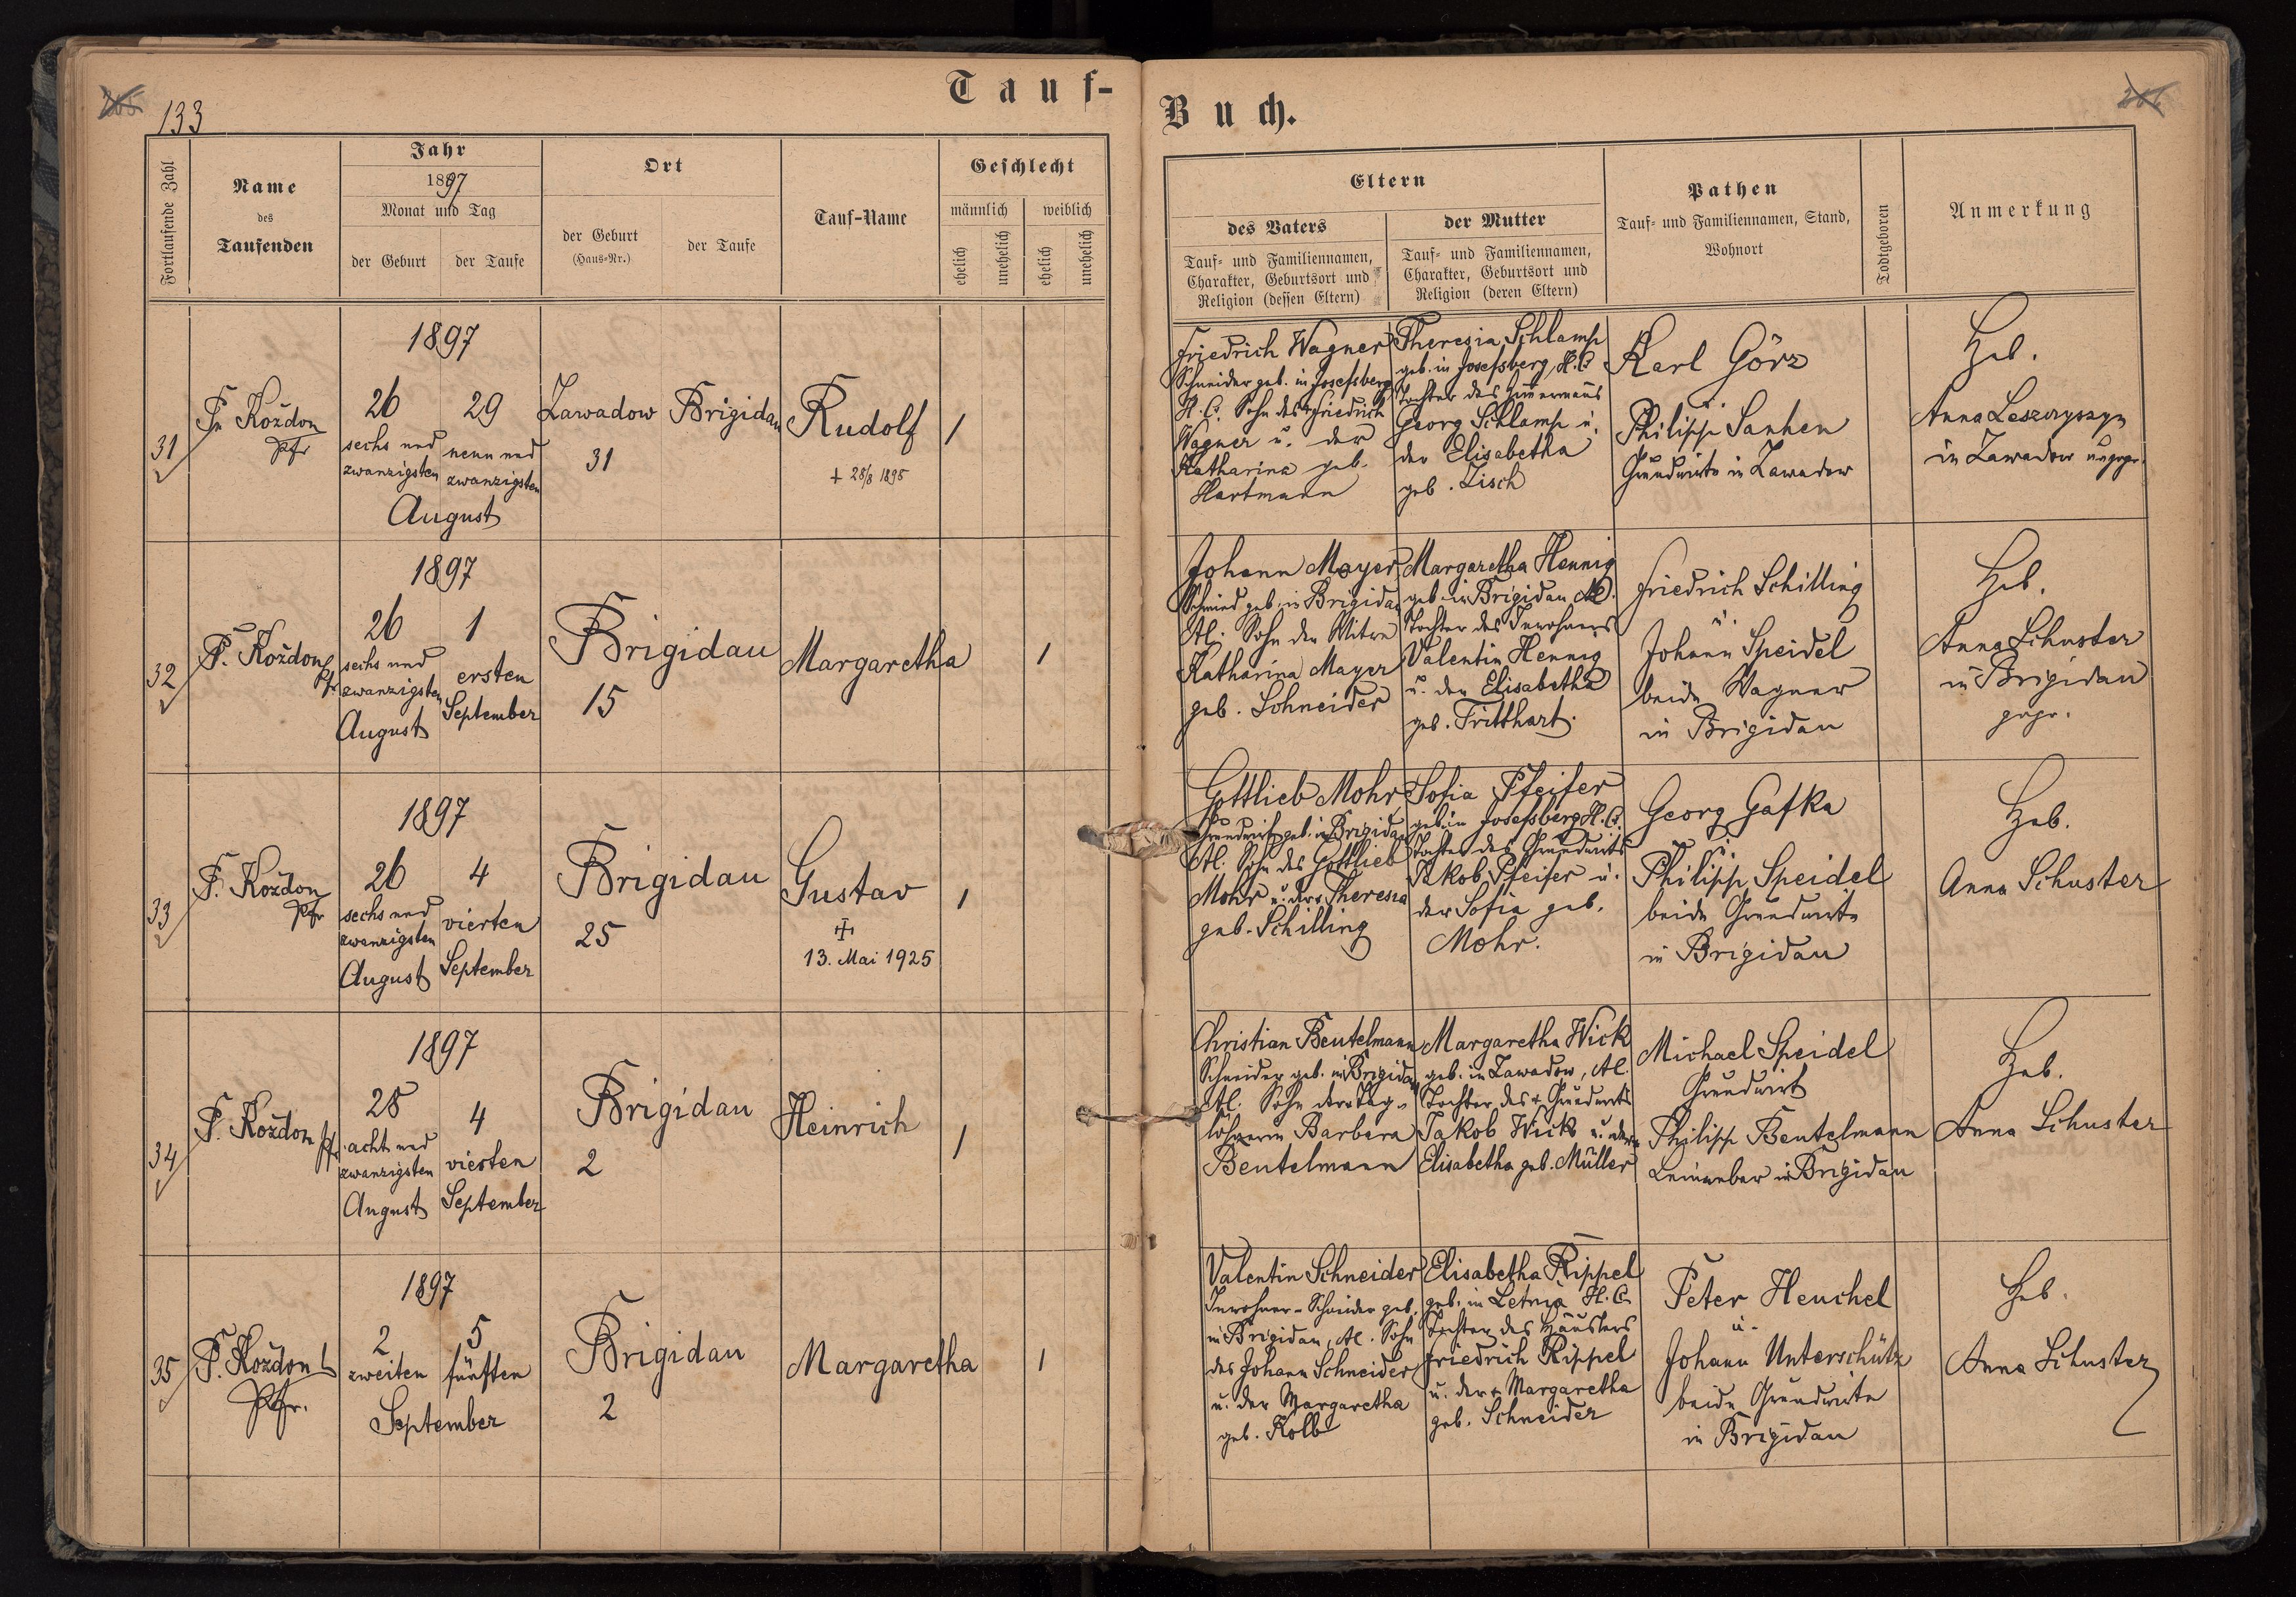 Tauf-
133
Fortlaufende Zahl
Name
des
Taufenden
Jahr
1897
Monat und Tag
der Geburt
der Taufe
Ort
der Geburt
(Haus-Nr.)
der Taufe
Tauf-Name
Geschlecht
männlich
weiblich
ehelich
unehelich
ehelich
unehelich
31
Koždon
Pfr
1897
26
sechs und
zwanzigsten
29
neun und
zwanzigsten
August
Zawadow
31
Brigidau
Rudolf
1
32
F. Koždon
Pfr
1897
26
sechs und
zwanzigsten
August
1
ersten
September
Brigidau
15
Margaretha
1
33
F. Koždon
Pfr
1897
26
sechs und
zwanzigsten
August
4
vierten
September
Brigidau
25
Gustav
13. Mai 1925
1
34
F. Koždon Pfr
1897
28
acht und
zwanzigsten
August
4
vierten
September
Brigidau
2
Heinrich
1
35
F. Koždon
Pfr.
1897
2
zweiten
5
fünften
September
Brigidau
2
Margaretha
1
Buch.
Eltern
des Vaters
Tauf- und Familiennamen,
Charakter, Geburtsort und
Religion (dessen Eltern)
der Mutter
Tauf- und Familiennamen,
Charakter, Geburtsort und
Religion (deren Eltern)
Pathen
Tauf- und Familiennamen, Stand,
Wohnort
Todtgeboren
Anmerkung
Friedrich Wagner
Schneider geb. in Josefsberg
H.C. Sohn des Friedrich
Wagner u. der
Katharina geb.
Hartmann
Theresia Schlamp
geb. in Josefsberg, H.C.
Tochter des Zimmermanns
Georg Schlamp u.
der Elisabetha
geb. Zisch
Karl Görz
u.
Philipp Sanhen
Grundwirte in Zawadow
Heb.
Anna
in Zawadow
Johann Mayer
Schmied geb. in Brigidau
Al. Sohn der Witwe
Katharina Mayer
geb. Schneider
Margaretha Hennig
geb. in Brigidau Al.
Tochter des Inwohners
Valentin Hennig
u. der Elisabetha
geb. Tritthart.
Friedrich Schilling
u.
Johann Speidel
beide Wagner
in Brigidau
Heb.
Anna Schuster
in Brigidau
gepr.
Gottlieb Mohr
Grundwirt geb. in Brigidau
Al. Sohn des Gottlieb
Mohr u. der Theresia
geb. Schilling
Sofia Pfeifer
geb. in Josefsberg H.C.
Tochter des Grundwirts
Jakob Pfeifer u.
der Sofia geb.
Mohr.
Georg Gafka
u.
Philipp Speidel
beide Grundwirte
in Brigidau
Heb.
Anna Schuster
Christian Beutelmann
Schneider geb. in Brigidau
Al. Sohn der Tag-
löhnerin Barbara
Beutelmann
Margaretha Wick
geb. in Zawadow, Al.
Tochter des Grundwirts
Jakob Wick u. der
Elisabetha geb. Müller
Michael Speidel
Grundwirt
Philipp Beutelmann
Leinweber in Brigidau
Heb.
Anna Schuster
Valentin Schneider
Inwohner-Schneider geb.
in Brigidau, Al. Sohn
des Johann Schneider
u. der Margaretha
geb. Kolb
Elisabetha Rippel
geb. in Letnia H.C.
Tochter des Häuslers
Friedrich Rippel
u. der Margaretha
geb. Schneider
Peter Heuchel
u.
Johann Unterschütz
beide Grundwirte
in Brigidau
Heb.
Anna Schuster